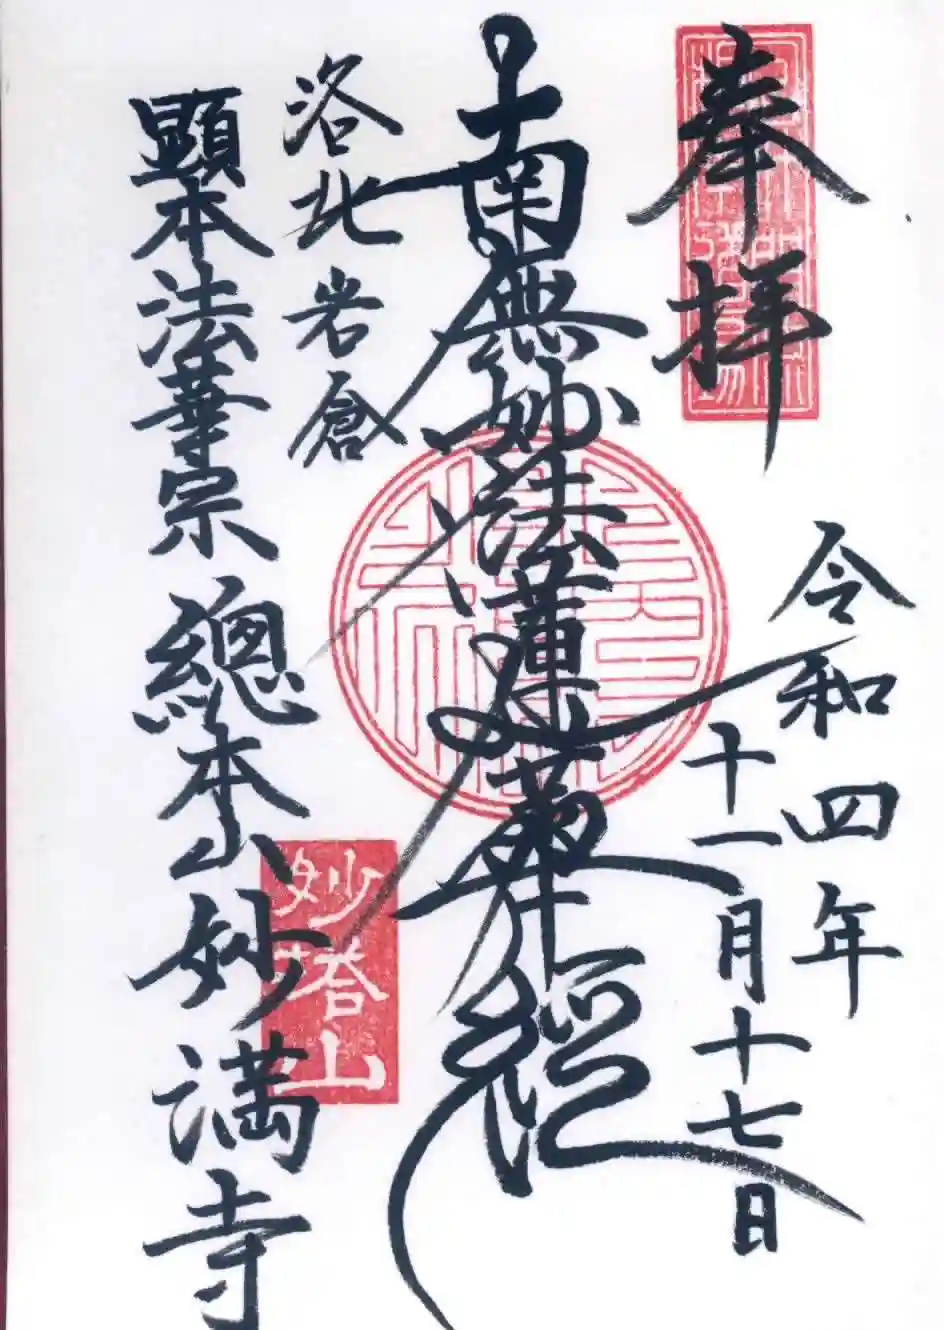 奉拝
令和四年
十一月十七日
南無妙法蓮華経
洛北岩倉
顕本法華宗總本山妙満寺
妙塔山